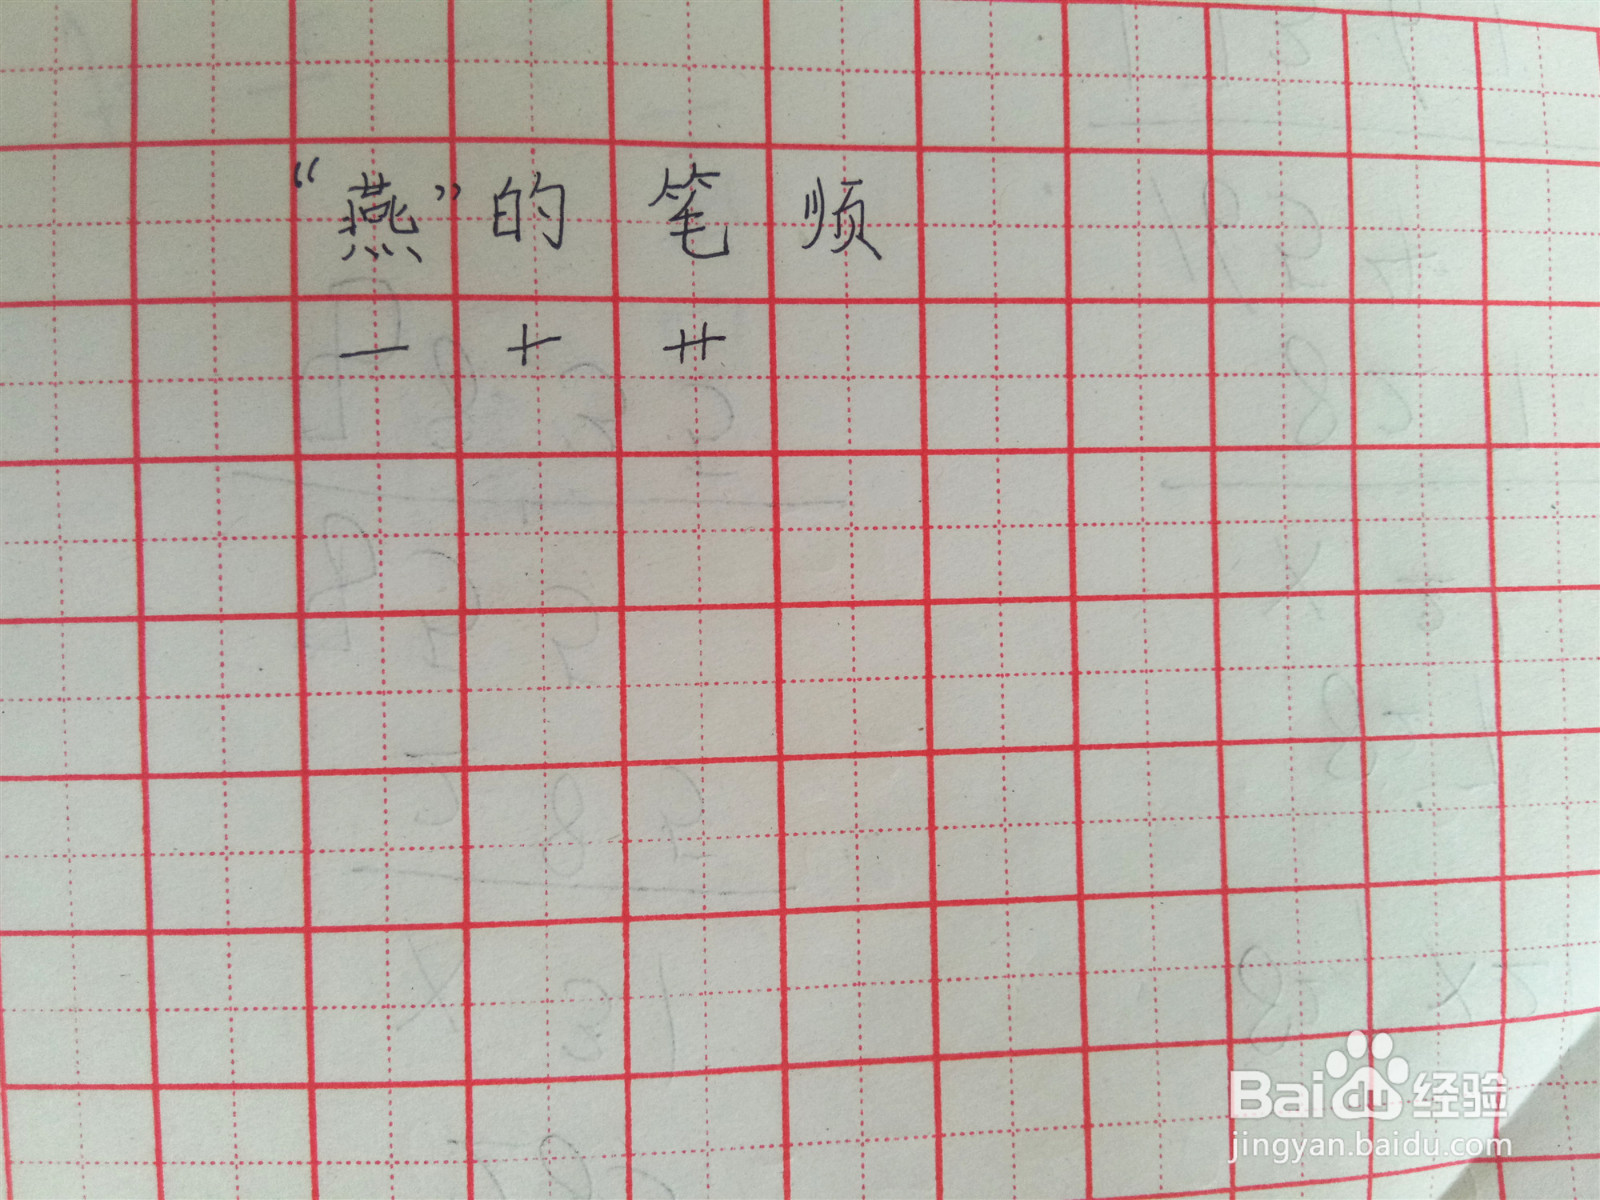 “燕”的笔顺
一 十 艹
Baidu 经验
jingyan.baidu.com